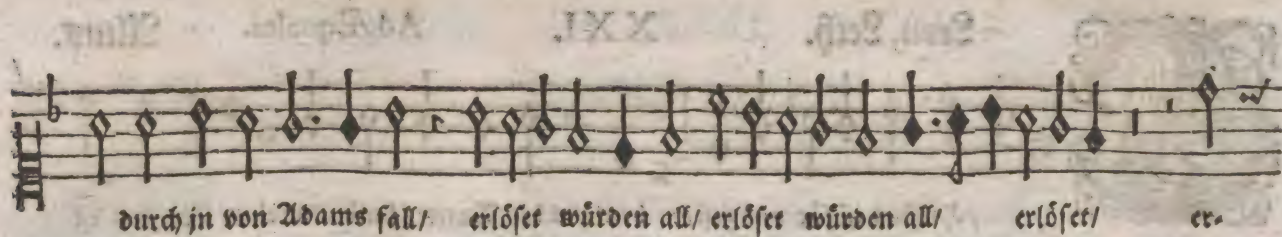 durch jn von Adams fall/ erlöset würden all/ erlöset würden all/ erlöset/ er-